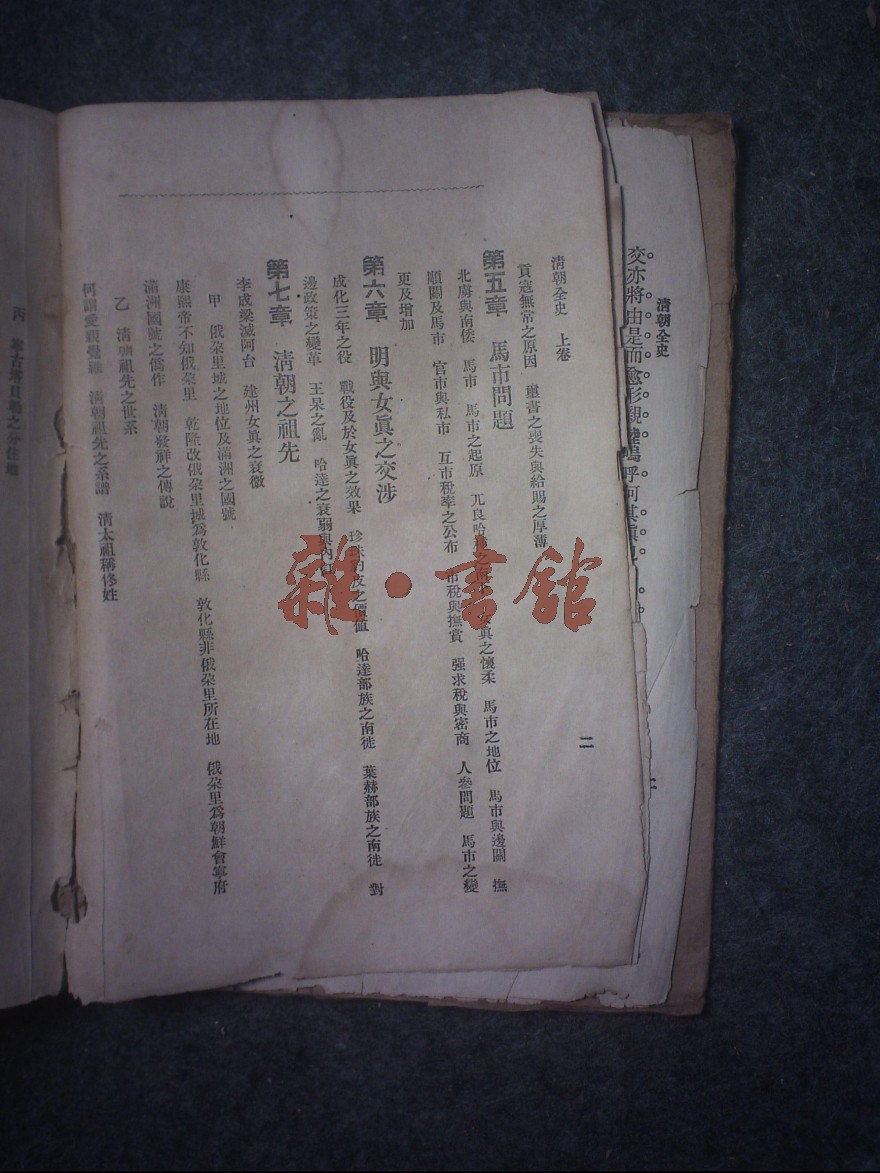 清朝全史
交亦將由是而愈形親睦嗚呼何其
清朝全史 上卷
二
貢寇無常之原因 璽書之喪失與給賜之厚薄
第五章 馬市問題
北虜與南倭 馬市 馬市之起原 兀良哈 女眞之懷柔 馬市之地位 馬市與邊關 撫
順關及馬市 官市與私市 互市稅率之公布 市稅與撫賞 强求稅與密商 人參問題 馬市之變
更及增加
第六章 明與女眞之交涉
成化三年之役 戰役及於女眞之效果 珍珠豹皮之價値 哈達部族之南徙 葉赫部族之南徙 對
邊政策之變革 王杲之亂 哈達之衰弱與內
第七章 淸朝之祖先
李成梁滅阿台 建州女眞之衰微
甲 俄朶里城之地位及滿洲之國號
康熙帝不知俄朶里 乾隆改俄朶里城爲敦化縣 敦化縣非俄朶里所在地 俄朶里爲朝鮮會寧府
滿洲國號之僞作 淸朝發祥之傳說
乙 淸朝祖先之世系
何謂愛親覺羅 淸朝祖先之系譜 淸太祖稱佟姓
丙 寧古塔貝勒之分住地
雜·書館